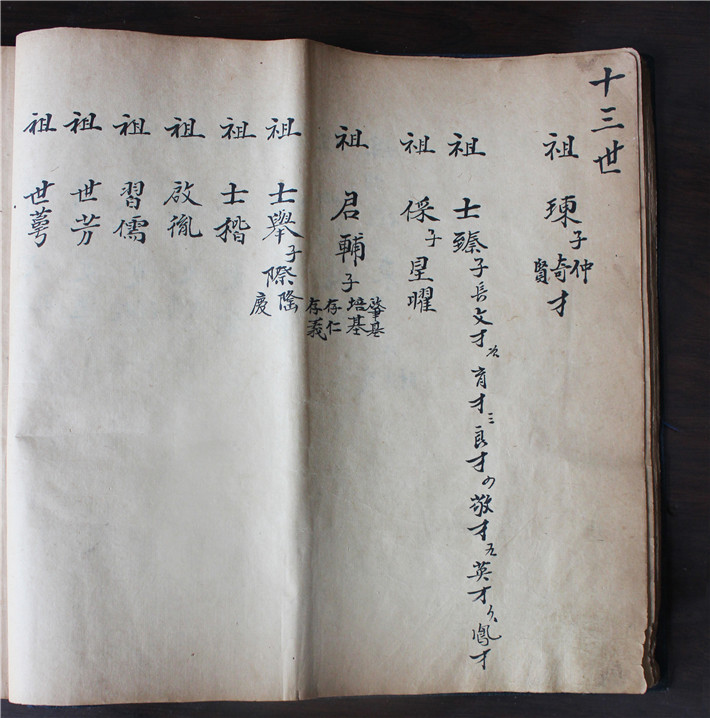 十三世
祖 子仲奇賢才
祖 士臻子長文才次育才三良才四敬才五英才六鳳才
祖 倸子星曜
祖 君輔子肇基培基存仁存義
祖 士舉子際隆慶
祖 士楷
祖 啟胤
祖 習儒
祖 世芳
祖 世蕚